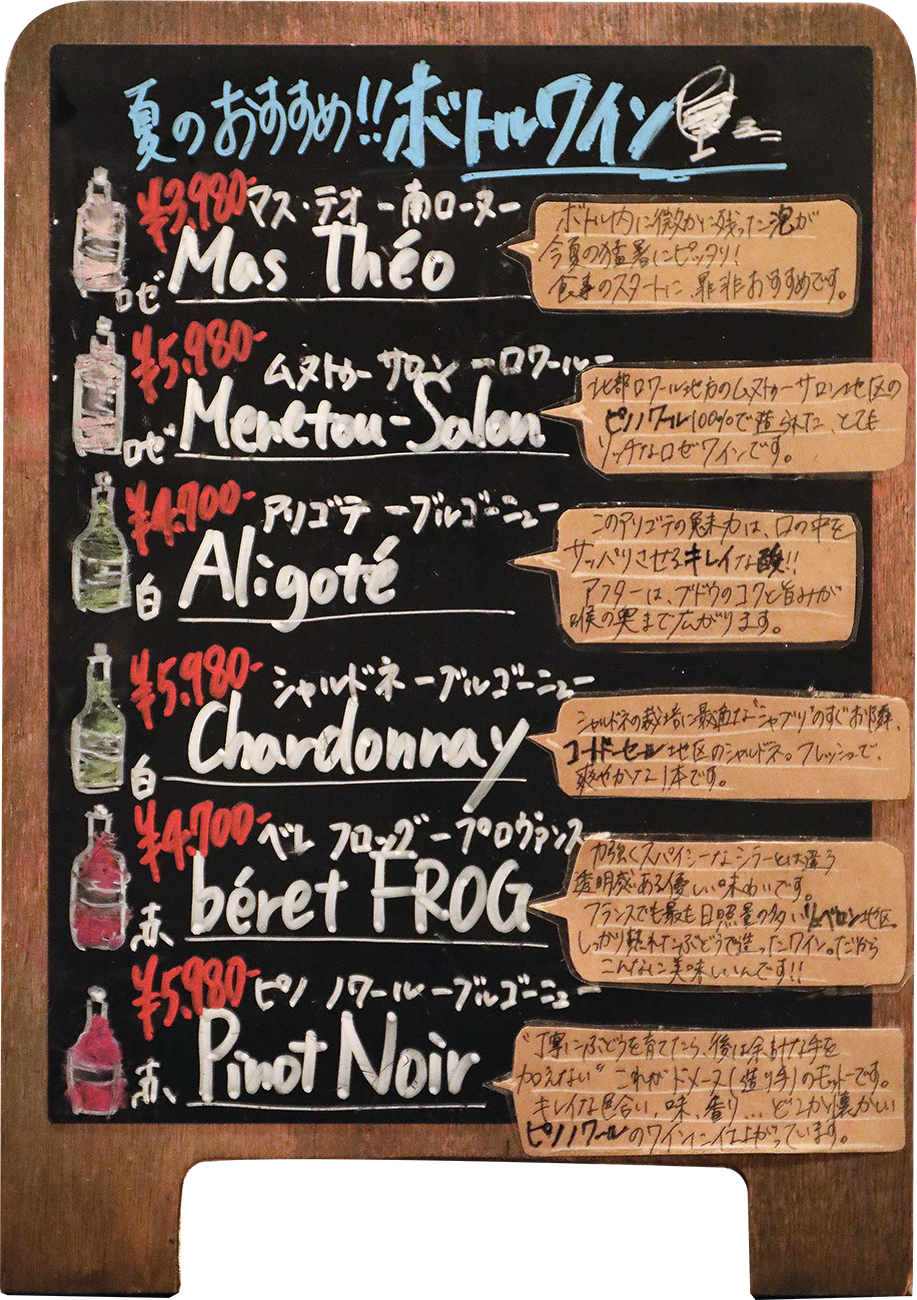 夏のおすすめ!!ボトルワイン
¥3,980- マス・テオ ー南ローヌー
Mas Théo
ロゼ
ボトル内に微かに残った泡が
今夏の猛暑にピッタリ!
食事のスタートに、是非おすすめです。
¥5,980- ムヌトゥー サロン ーロワールー
Menetou-Salon
ロゼ
北部ロワール地方のムヌトゥーサロン地区の
ピノノワール100%で造られた、とても
リッチなロゼワインです。
¥4,700- アリゴテ ーブルゴーニュー
Aligoté
白
このアリゴテの魅力は、口の中を
サッパリさせるキレイな酸!!
アフターは、ブドウのコクと旨みが
喉の奥まで広がります。
¥5,980- シャルドネ ーブルゴーニュー
Chardonnay
白
シャルドネの栽培に最適な"シャブリ"のすぐお隣、
コートドーセール地区のシャルドネ。フレッシュで、
爽やかな1本です。
¥4,700- ベレ フロッグ ープロヴァンスー
béret FROG
赤
力強くスパイシーなシラーとは違う
透明感ある優しい味わいです。
フランスでも最も日照量の多いリュベロン地区。
しっかり熟れたぶどうで造ったワイン。だから
こんなに美味しいんです!!
¥5,980- ピノ ノワール ーブルゴーニュー
Pinot Noir
赤
"丁寧にぶどうを育てたら、後は余計な手を
加えない" これがドメーヌ(造り手)のモットーです。
キレイな色合い、味、香り…どこか懐かしい
ピノノワールのワインに仕上がっています。